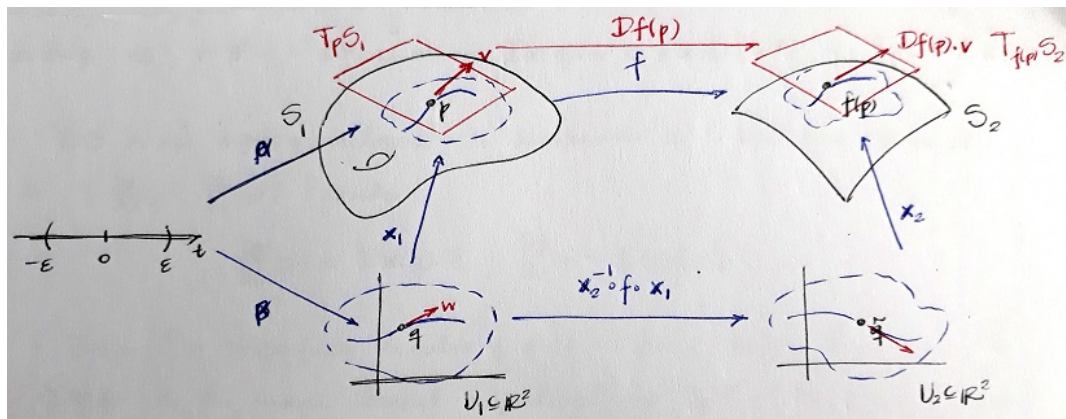 TₚS₁
v
Df(p)
f
Df(p)·v
T_f(p)S₂
S₁
p
f(p)
S₂
α
x₁
x₂
-ε
0
ε
t
β
w
q
x₂⁻¹∘f∘x₁
q̃
U₁⊆ℝ²
U₂⊆ℝ²